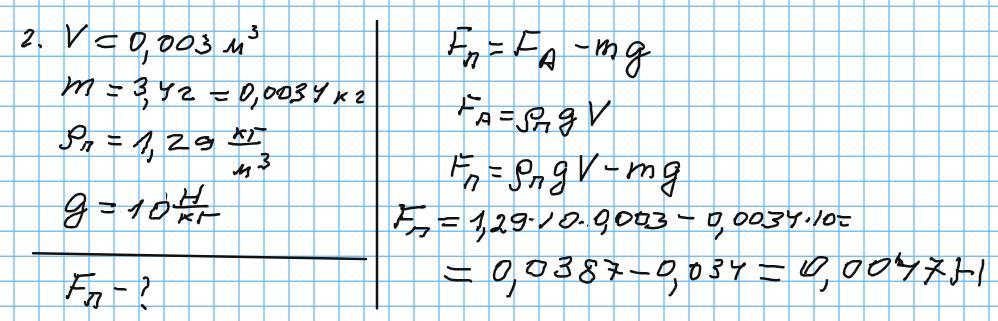 2. V = 0,003 м³
m = 3,4г = 0,0034 кг
ρп = 1,29 кг/м³
g = 10 Н/кг
Fп - ?
Fп = FA - mg
FA = ρп g V
Fп = ρп g V - mg
Fп = 1,29·10·0,003 - 0,0034·10 =
= 0,0387 - 0,034 = 0,0047 Н